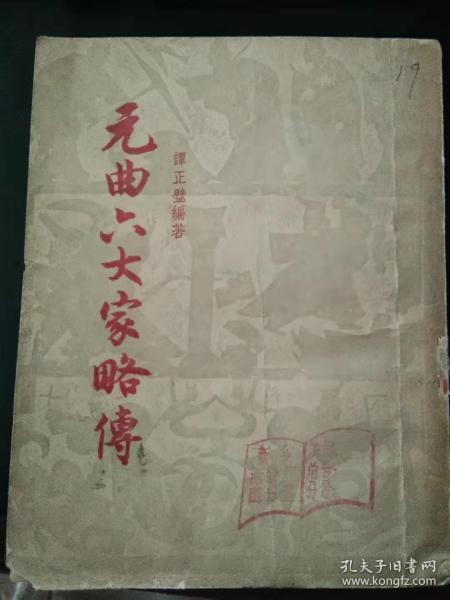 元曲六大家略傳
譚正璧編著
19
孔夫子旧书网
www.kongfz.com